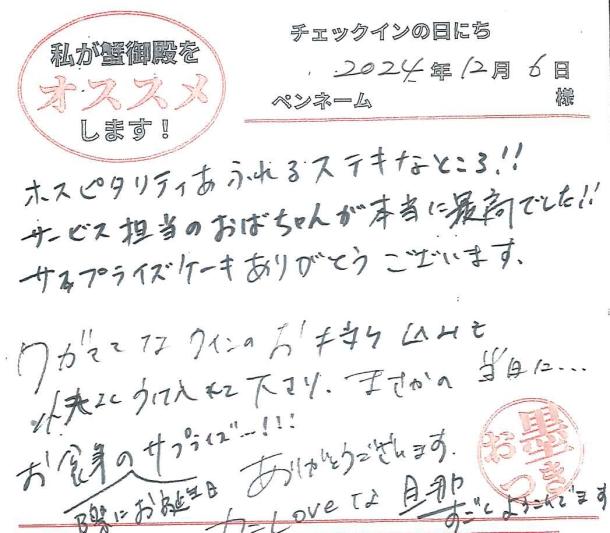 私が蟹御殿を
オススメ
します!
チェックインの日にち
2024年12月6日
ペンネーム 様
ホスピタリティあふれるステキなところ!!
サービス担当のおばちゃんが本当に最高でした!!
サプライズケーキありがとうございます。
ワガママなワインのお持ち込みも
快く受け入れて下さり、まさかの当日に...
お食事のサプライズ...!!!
ありがとうございます。
際にお誕生日
カニLoveな旦那
すごくよろこんでます
お墨つき